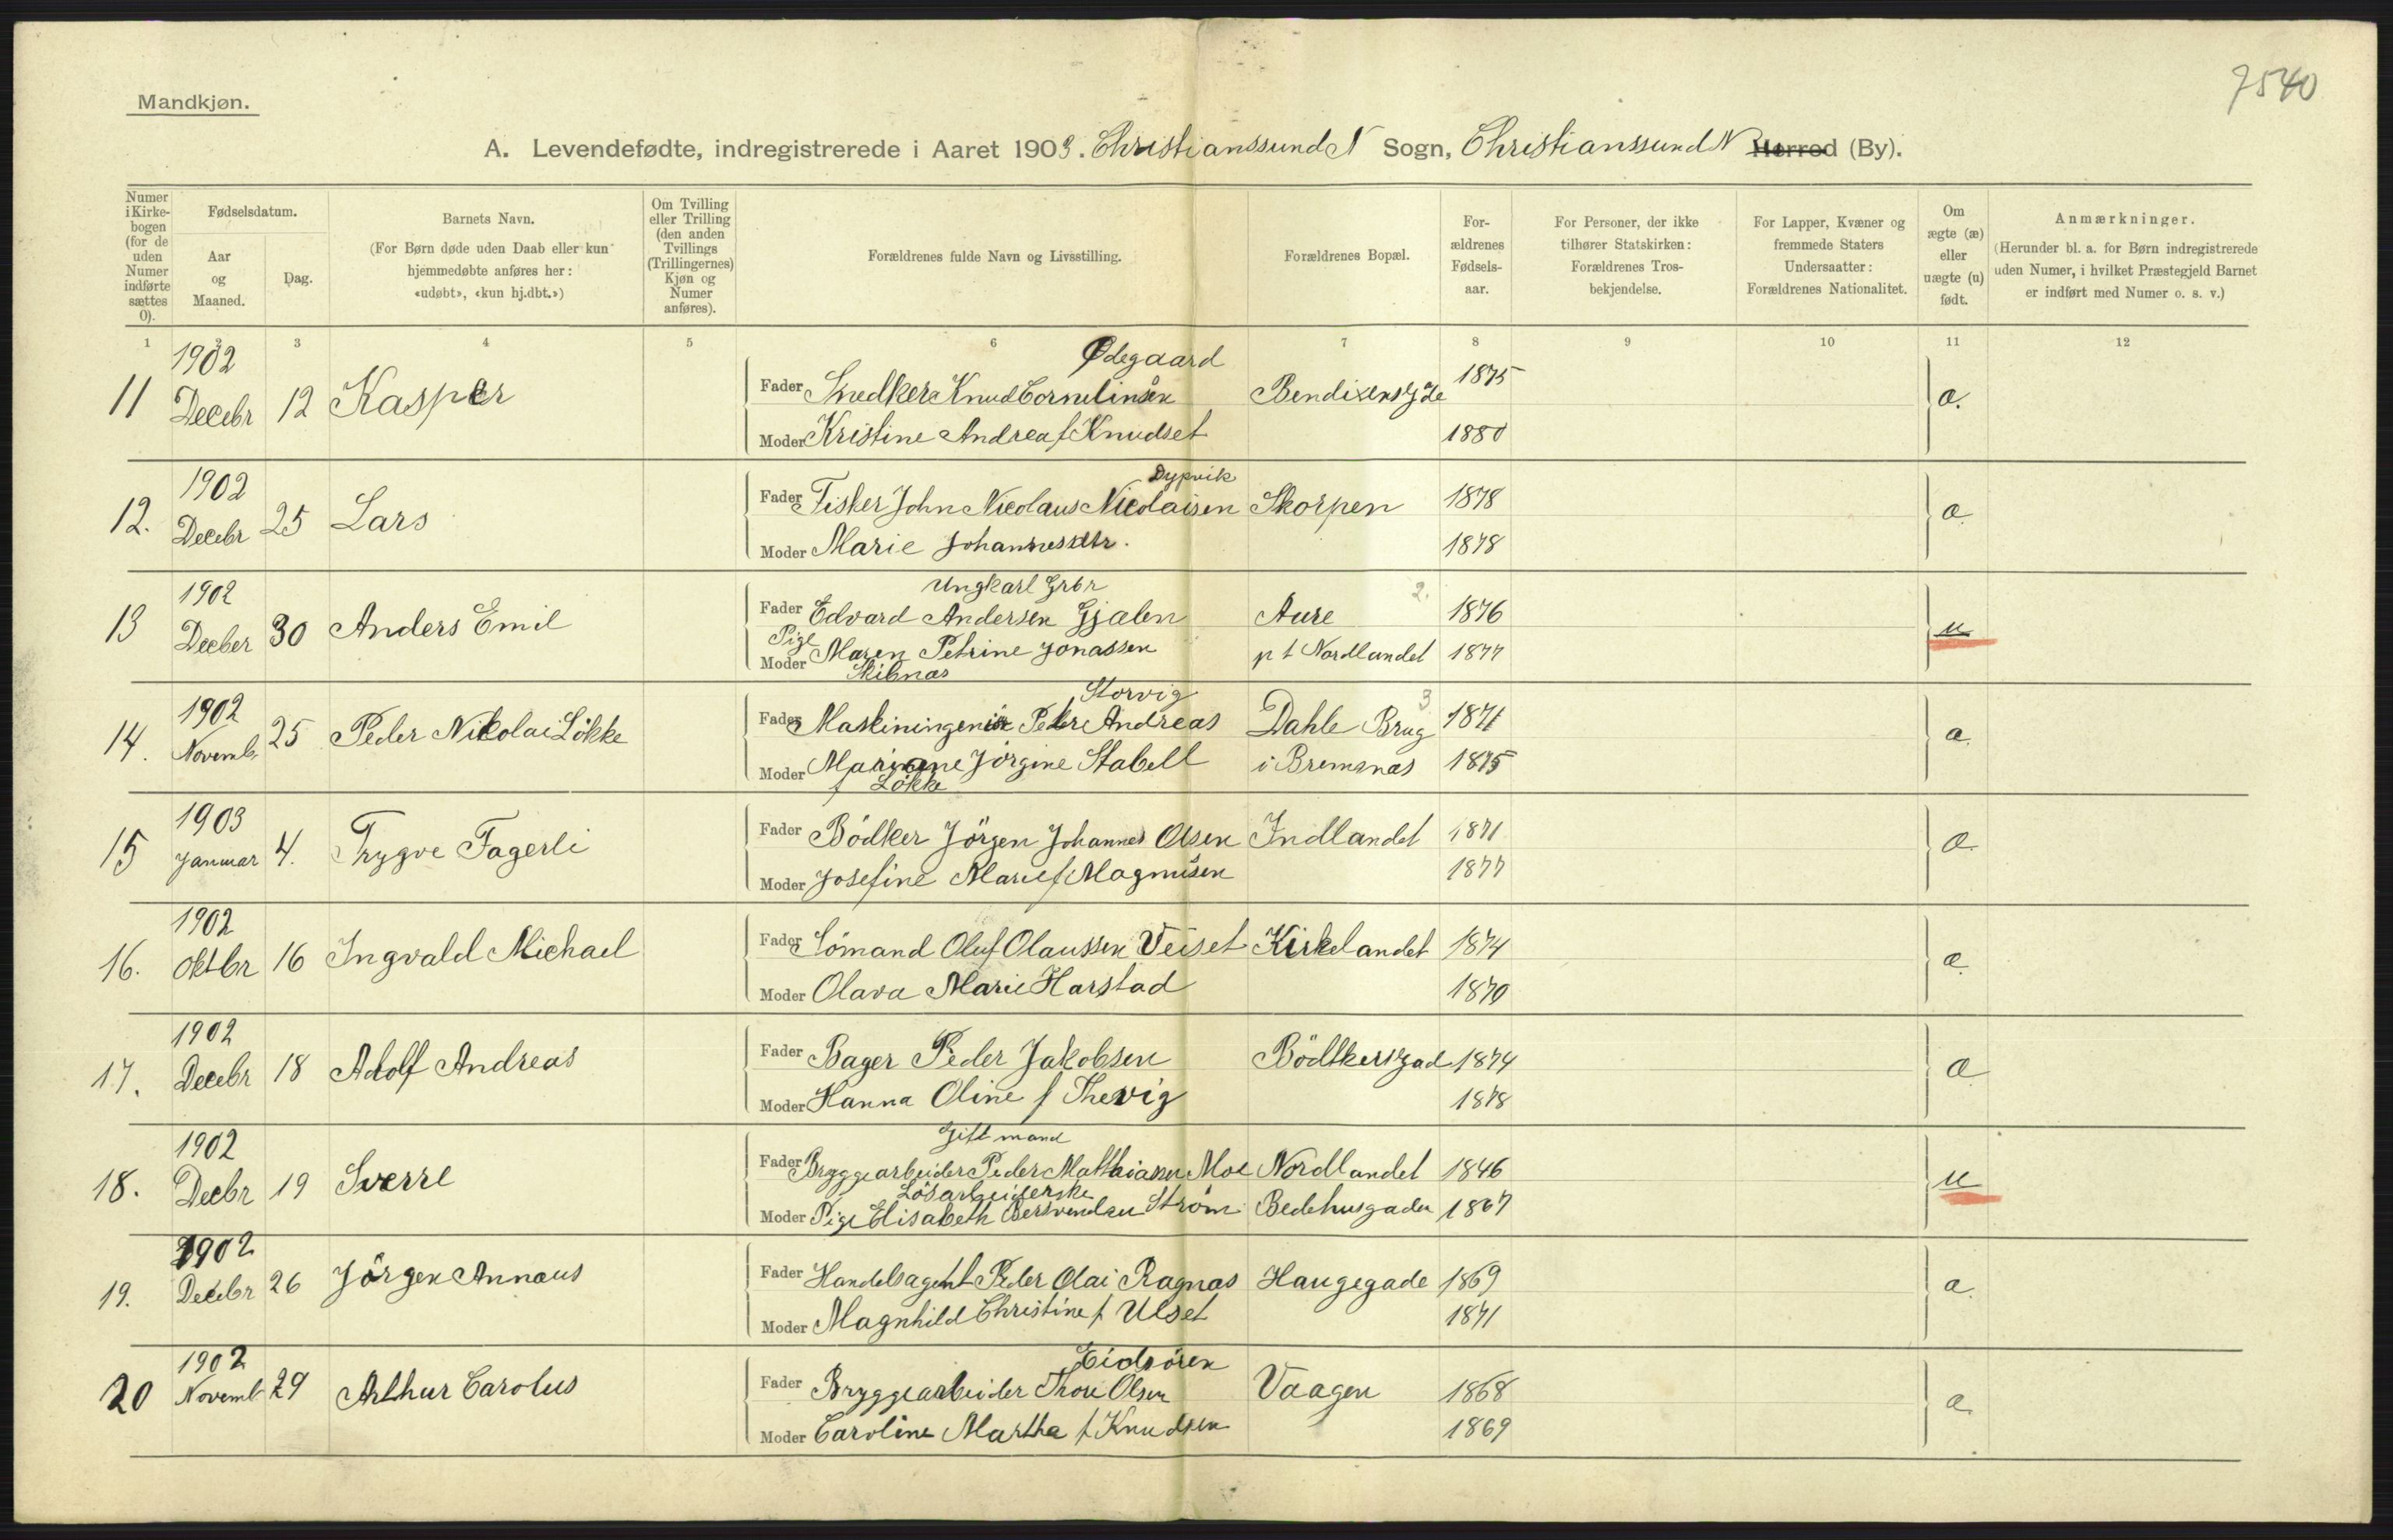 7540
Mandkjøn.
A. Levendefødte, indregistrerede i Aaret 1903. Christianssund N Sogn, Christianssund N Herred (By).
Numer i Kirkebogen (for de uden Numer indførte sættes 0).
Fødselsdatum.
Aar og Maaned.
Dag.
Barnets Navn.
(For Børn døde uden Daab eller kun hjemmedøbte anføres her: «udøbt», «kun hj.dbt.»)
Om Tvilling eller Trilling (den anden Tvillings (Trillingernes) Kjøn og Numer anføres).
Forældrenes fulde Navn og Livsstilling.
Forældrenes Bopæl.
Forældrenes Fødselsaar.
For Personer, der ikke tilhører Statskirken: Forældrenes Trosbekjendelse.
For Lapper, Kvæner og fremmede Staters Undersaatter: Forældrenes Nationalitet.
Om ægte (æ) eller uægte (u) født.
Anmærkninger.
(Herunder bl. a. for Børn indregistrerede uden Numer, i hvilket Præstegjeld Barnet er indført med Numer o. s. v.)
1 2 3 4 5 6 7 8 9 10 11 12
1902 Ødegaard
11 Decebr 12 Kasper Fader Snedker Knud Cornelinsen Bendixensgde 1875 æ.
Moder Kristine Andrea f Knudset 1880
1902 Dypvik
12. Decebr 25 Lars Fader Fisker John Nicolaus Nicolaisen Skorpen 1878 æ
Moder Marie Johannesdtr. 1878
1902 Ungkarl Grbr 2.
13 Deeber 30 Anders Emil Fader Edvard Andersen Gjælen Aure 1876 u
Pige
Moder Maren Petrine Jonassen p t Nordlandet 1877
Skibnæs
1902 Storvig 3
14. Novemb. 25 Peder Nikolai Lökke Fader Maskiningeniör Peter Andreas Dahle Brug 1871 æ
Moder Mariane Jörgine Stabell i Bremsnæs 1875
f Lökke
1903
15 Januar 4. Trygve Fagerli Fader Bödker Jörgen Johannes Olsen Indlandet 1871 æ
Moder Josefine Marie f Magnusen 1877
1902
16. Oktbr 16 Ingvald Michael Fader Sömand Oluf Olaussen Veiset Kirkelandet 1874 æ
Moder Olava Marie Harstad 1870
1902
17. Decebr 18 Adolf Andreas Fader Bager Peder Jakobsen Bödtkersgad 1874 æ
Moder Hanna Oline f Thevig 1878
1902 Gift mand
18. Decbr 19 Sverre Fader Bryggearbeider Peder Matthiassen Moe Nordlandet 1846 u
Lösarbeiderske
Moder Pige Elisabeth Bersvendsen Ström Bedehusgaden 1867
1902
19. Decebr 26 Jörgen Annæus Fader Handelsagent Peder Olai Ragnæs Haugegade 1869 æ
Moder Magnhild Christine f Ulset 1871
1902 Eidsören
20 Novemb 29 Arthur Carolus Fader Bryggearbeider Thore Olsen Vaagen 1868 æ
Moder Caroline Martha f Knudsen 1869